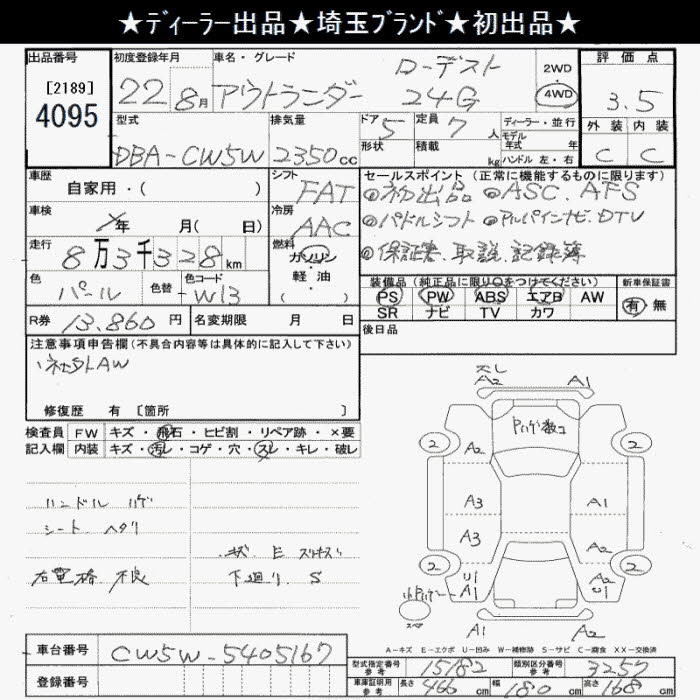 ★ディーラー出品★埼玉ブランド★初出品★
出品番号
[2189]
4095
初度登録年月
22 8月
車名・グレード
アウトランダー
ローデスト
24G
2WD
4WD
評価点
3.5
外装 内装
C C
型式
DBA-CW5W
排気量
2350cc
ドア 5
形状
定員 7人
積載 kg
ディーラー・並行
モデル
年式 年式
ハンドル 左・右
車歴
自家用・( )
シフト
FAT
セールスポイント (正常に機能するものに限ります)
◎初出品 ◎ASC.AFS
◎パドルシフト ◎アルパインナビ.DTV
◎保証書.取説.記録簿
車検
年 月(日)
冷房
AAC
走行
8万3千328km
燃料
ガソリン
軽油
( )
色
パール
色替
色コード
W13
装備品 (純正品に限り○をつけてください)
PS PW ABS エアB AW
SR ナビ TV カワ
新車保証書
有 無
R券 13,860円
名変期限 月 日
後日品
注意事項申告欄 (不具合内容等は具体的に記入して下さい)
社外AW
修復歴 有 [箇所 ]
検査員 FW キズ・飛石・ヒビ割・リペア跡・×要
記入欄 内装 キズ・汚レ・コゲ・穴・スレ・キレ・破レ
ハンドル ハゲ
シート ヘタリ
キズ E スリキズ
右電格 不良
下廻り S
A2 A1
2 2
A2
A3 A1
A3 A2
U1
A1
A2
2 2
スペア
A1 A2
A-キズ E-エクボ U-凹み W-補修跡 S-サビ C-腐食 XX-交換済
車台番号 CW5W-5405167
登録番号
型式指定番号
参考 15182
類別区分番号
参考 3257
車庫証明用
参考 長さ 466cm 幅 180cm 高さ 168cm